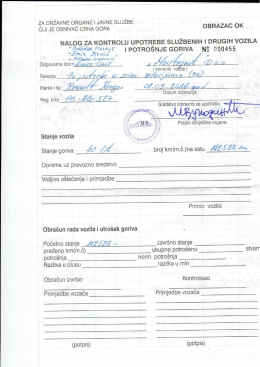 ZA DRŽAVNE ORGANE I JAVNE SLUŽBE
ČIJI JE OSNIVAČ CRNA GORA
OBRAZAC OK
NALOG ZA KONTROLU UPOTREBE SLUŽBENIH I DRUGIH VOZILA
I POTROŠNJE GORIVA № 000455
Odgovorno lice
(korisnik vozila)
Relacija Po potrebi u
Marka i tip Renault
Datum izdavanja
Reg. broj PG
Sredstvo ispravno za upotrebu
Potpis starješine organa
Stanje vozila
Stanje goriva 40 lit broj km(m.č.)na satu 142588 km
Oprema uz prevozno sredstvo
Vidljiva oštećenja i primjedbe
Primio vozilo
Obračun rada vozila i utrošak goriva
Početno stanje 142588 završno stanje
pređeno km(m.č) ukupno potrošeno stvarna
potrošnja norm. potrošnja
Razlika u plusu razlika u min
Obračun izvršio Kontrolisao
Primjedbe vozača Primjedbe vozača
(potpis) (potpis)